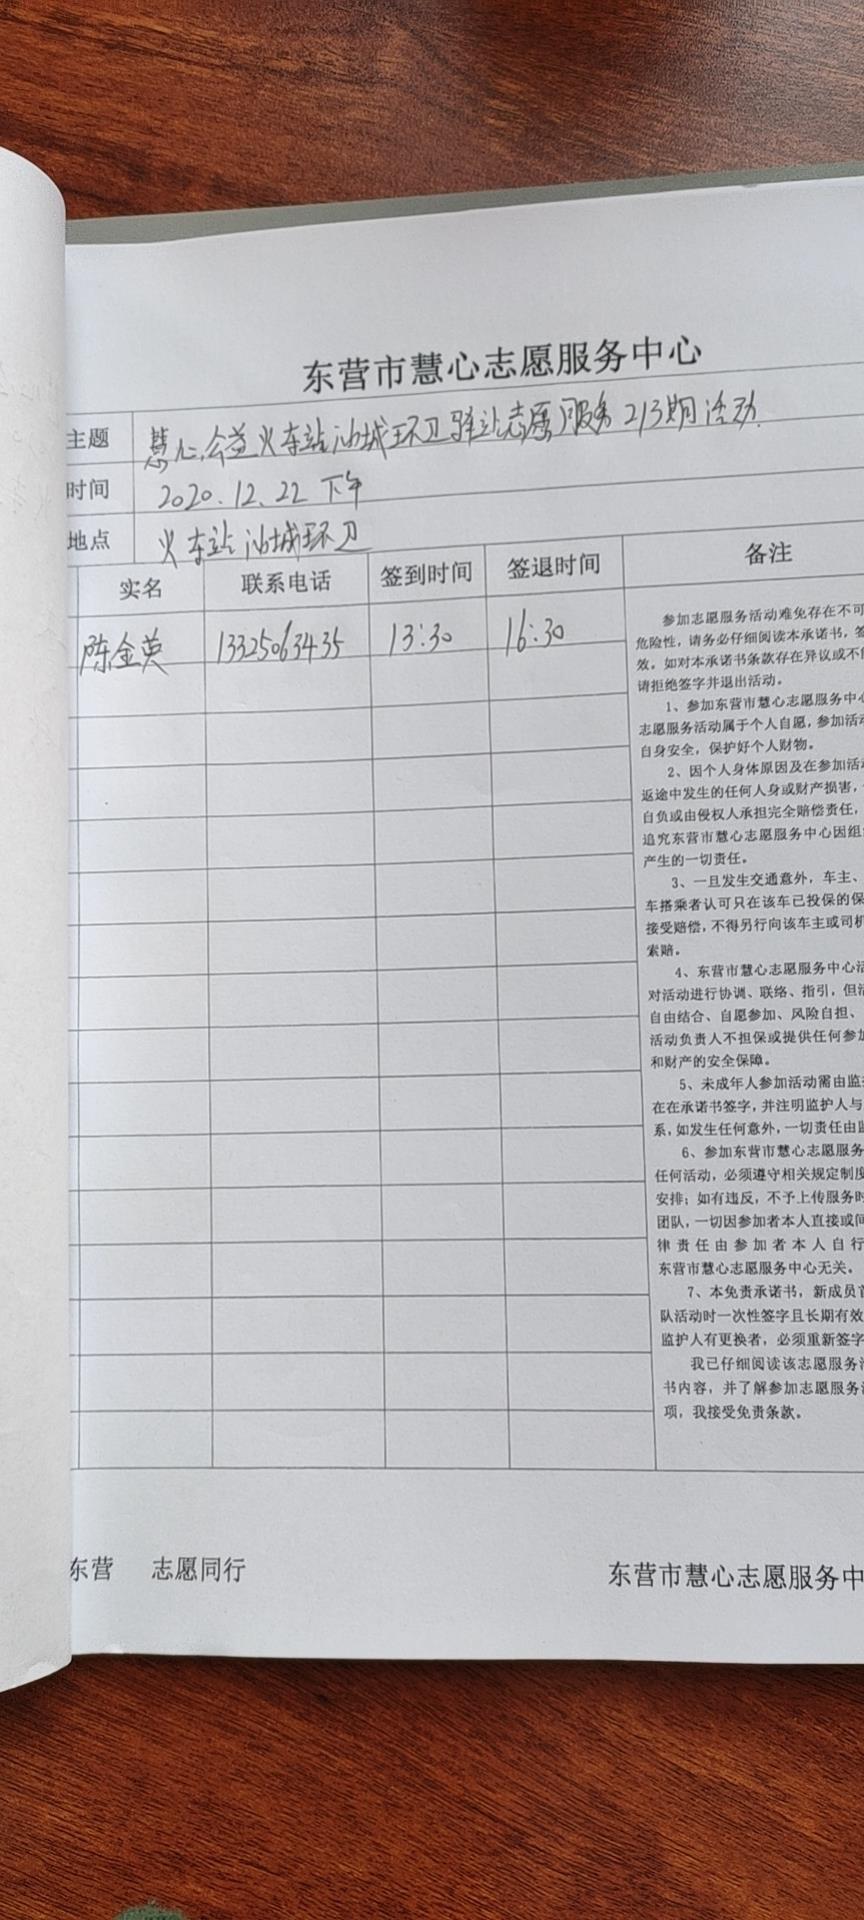 东营市慧心志愿服务中心
主题 慧心公益火车站油城环卫驿站志愿服务213期活动.
时间 2020.12.22 下午
地点 火车站油城环卫
实名 联系电话 签到时间 签退时间 备注
陈金英 13325063435 13:30 16:30
参加志愿服务活动难免存在不可
危险性，请务必仔细阅读本承诺书，签
效。如对本承诺书条款存在异议或不
请拒绝签字并退出活动。
1、参加东营市慧心志愿服务中心
志愿服务活动属于个人自愿，参加活动
自身安全，保护好个人财物。
2、因个人身体原因及在参加活动
返途中发生的任何人身或财产损害，
自负或由侵权人承担完全赔偿责任，
追究东营市慧心志愿服务中心因组
产生的一切责任。
3、一旦发生交通意外，车主、
车搭乘者认可只在该车已投保的保
接受赔偿，不得另行向该车主或司机
索赔。
4、东营市慧心志愿服务中心活
对活动进行协调、联络、指引，但活
自由结合、自愿参加、风险自担、
活动负责人不担保或提供任何参加
和财产的安全保障。
5、未成年人参加活动需由监
在在承诺书签字，并注明监护人与
系，如发生任何意外，一切责任由监
6、参加东营市慧心志愿服务
任何活动，必须遵守相关规定制度
安排；如有违反，不予上传服务时
团队，一切因参加者本人直接或间
律责任由参加者本人自行
东营市慧心志愿服务中心无关。
7、本免责承诺书，新成员首
队活动时一次性签字且长期有效
监护人有更换者，必须重新签字
我已仔细阅读该志愿服务活
书内容，并了解参加志愿服务活
项，我接受免责条款。
东营 志愿同行 东营市慧心志愿服务中